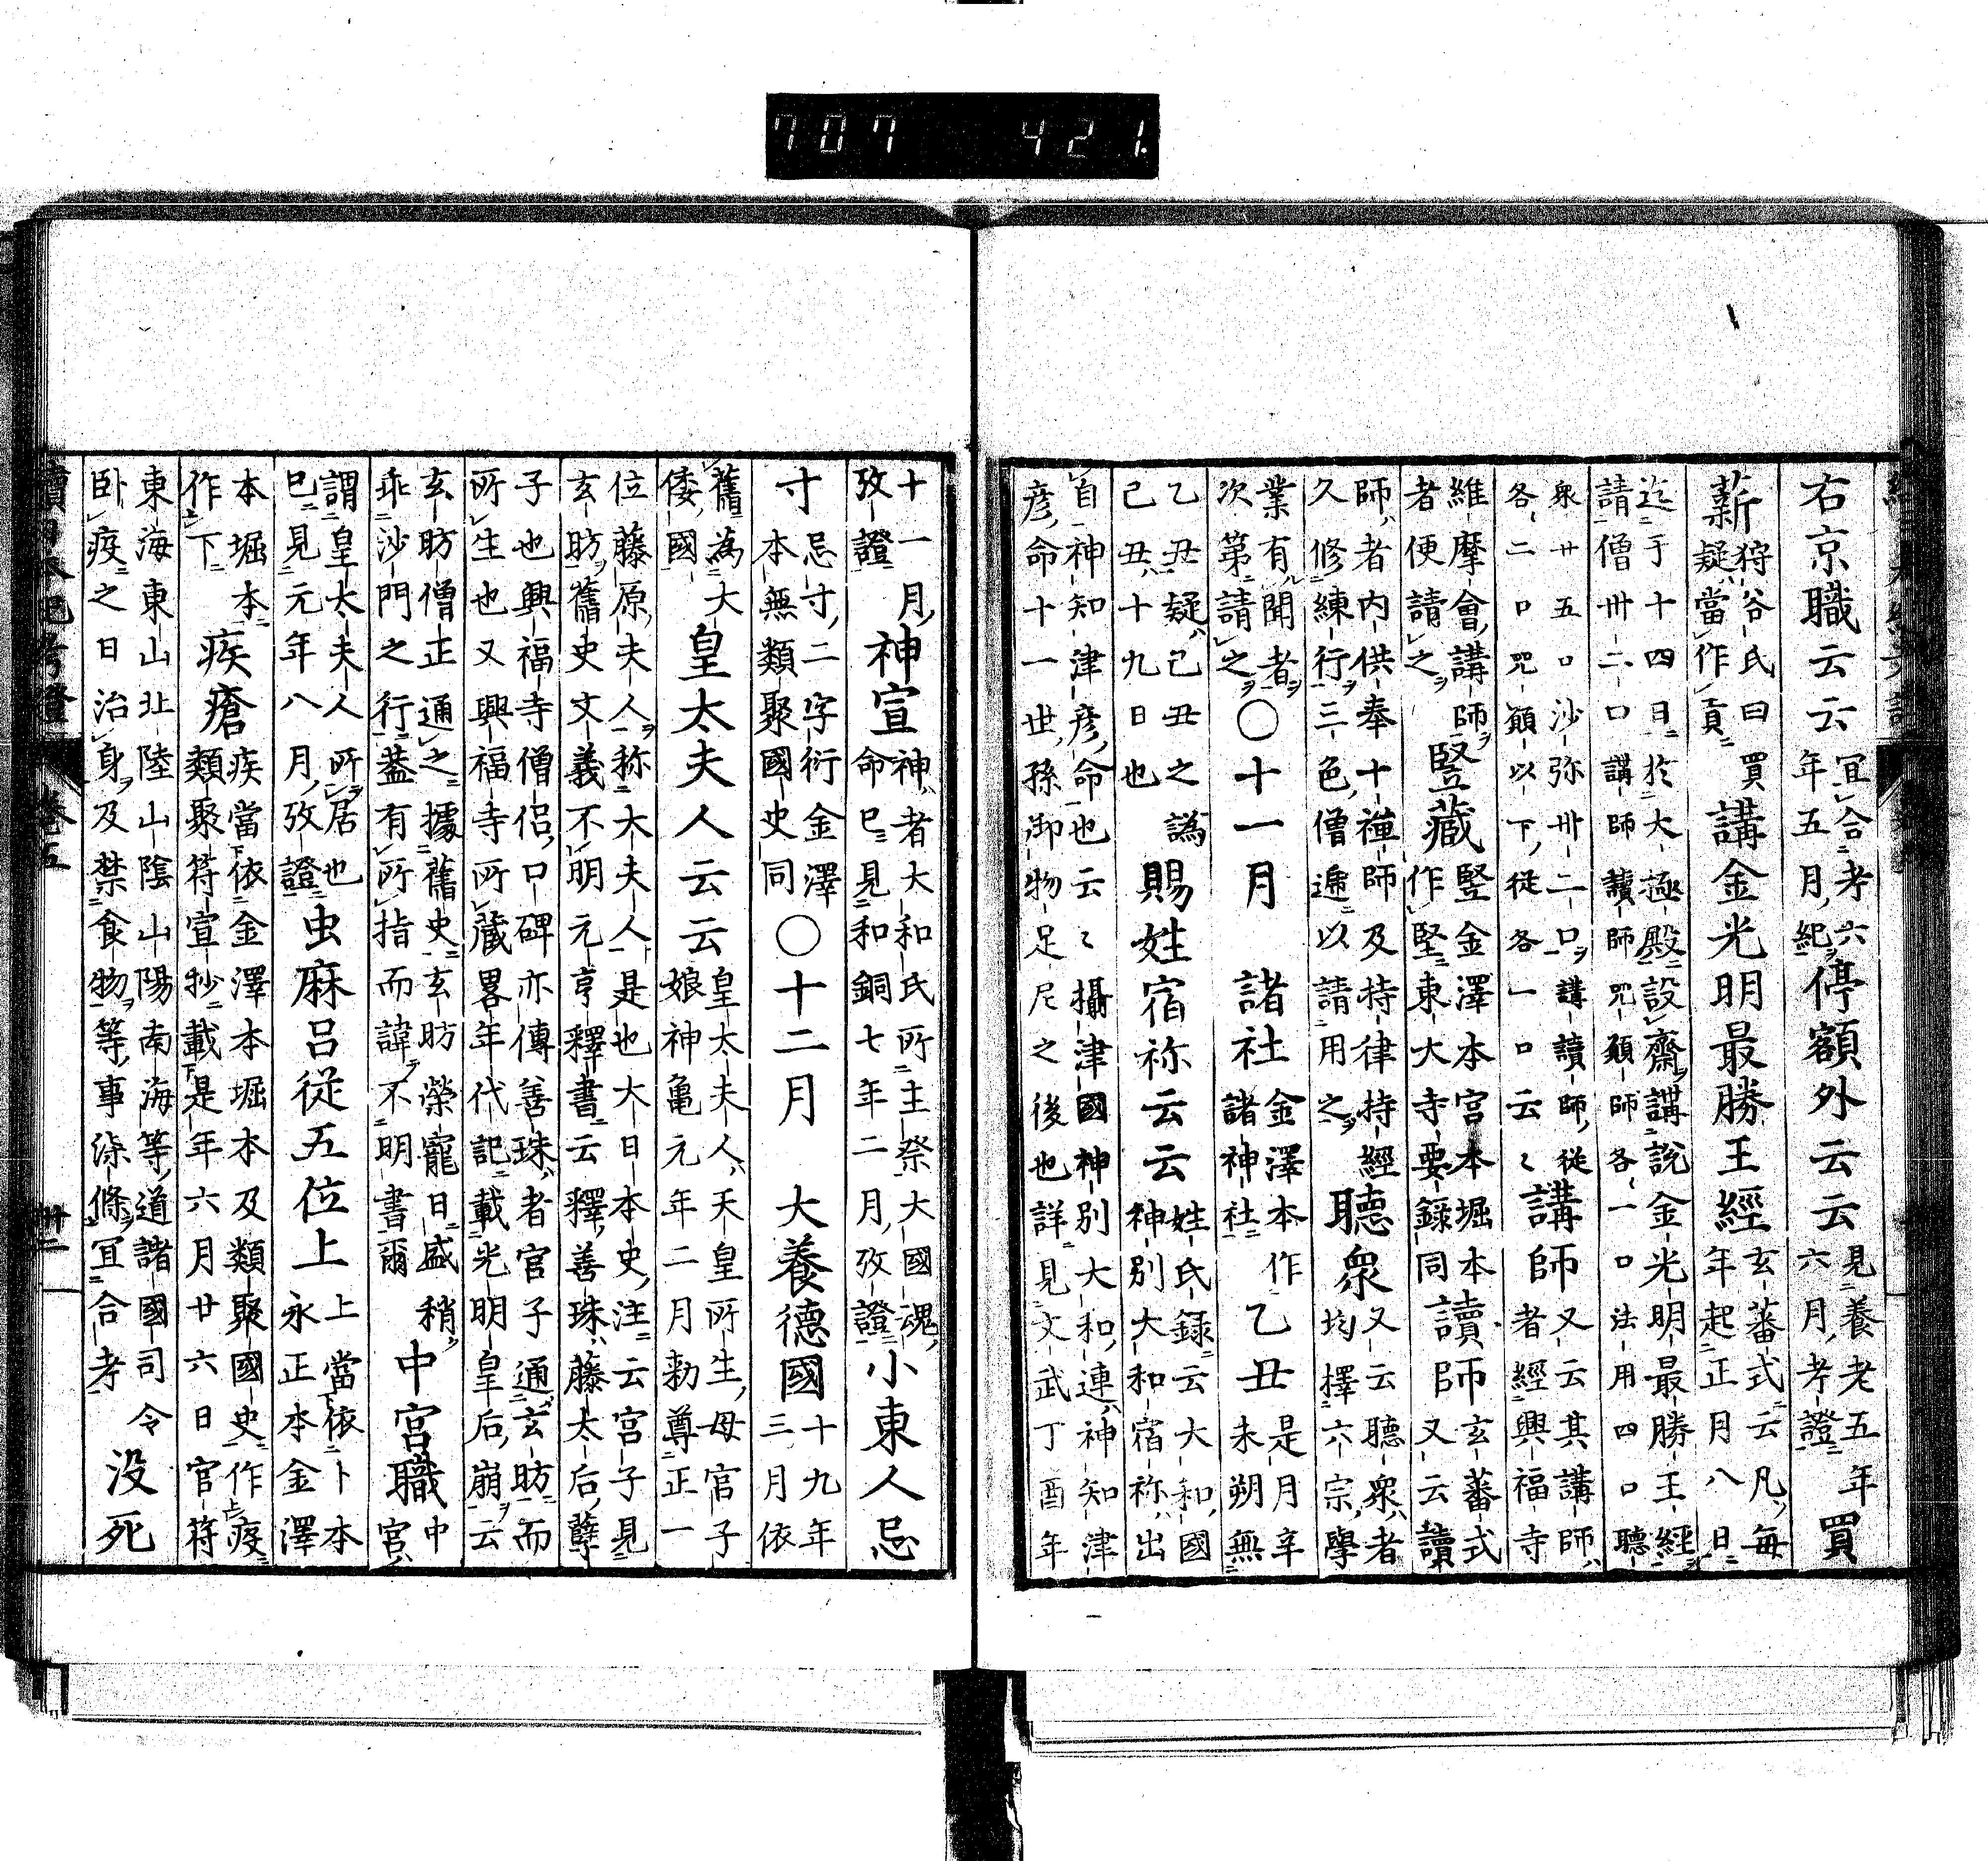 707 421.
右京職云云 宜合考六年五月紀 停額外云云 見養老五年六月考證 買
薪 狩谷氏曰買疑當作貢 講金光明最勝王經 玄蕃式云凡毎年起正月八日
迄于十四日於大極殿設齋講說金光明最勝王經請僧卅二口講師讀師咒願師各一口法用四口聽
衆廿五口沙弥卅二口講讀師從各二口咒願以下從各一口云〻 講師 又云其講師者經興福寺
維摩會講師者便請之 竪藏 竪金澤本宮本堀本作堅東大寺要録同 讀師 玄蕃式又云讀
師者内供奉十禪師及持律持經久修練行三色僧遞以請用之 聽衆 又云聽衆者均擇六宗學
業有聞者次第請之 〇十一月 諸社 金澤本作諸神社 乙丑 是月辛未朔無
乙丑疑己丑之譌己丑十九日也 賜姓宿祢云云 姓氏録云大和國神別大和宿祢出
自神知津彦命也云〻攝津國神別大和連神知津彦命十一世孫御物足尼之後也詳見文武丁酉年
十一月攷證 神宣 神者大和氏所主祭大國魂命巳見和銅七年二月攷證 小東人忌
寸 忌寸二字衍金澤本無類聚國史同 〇十二月 大養德國 十九年三月依
舊為大倭國 皇太夫人云云 皇太夫人天皇所生母宮子娘神亀元年二月勅尊正一
位藤原夫人称大夫人是也大日本史注云宮子見玄昉舊史文義不明元亨釋書云釋善珠藤太后孽
子也興福寺僧侶口碑亦傳善珠者宮子通玄昉而所生也又興福寺所藏畧年代記載光明皇后崩云
玄昉僧正通之據舊史玄昉榮寵日盛稍乖沙門之行葢有所指而諱不明書爾 中宮職 中宮
謂皇太夫人所居也巳見元年八月攷證 虫麻呂従五位上 上當依卜本永正本金澤
本堀本作下 疾瘡 疾當依金澤本堀本及類聚國史作疫類聚符宣抄載是年六月廿六日官符
東海東山北陸山陰山陽南海等道諸國司令卧疫之日治身及禁食物等事漆條宜合考 没死
續日本紀考證 卷五 卅二